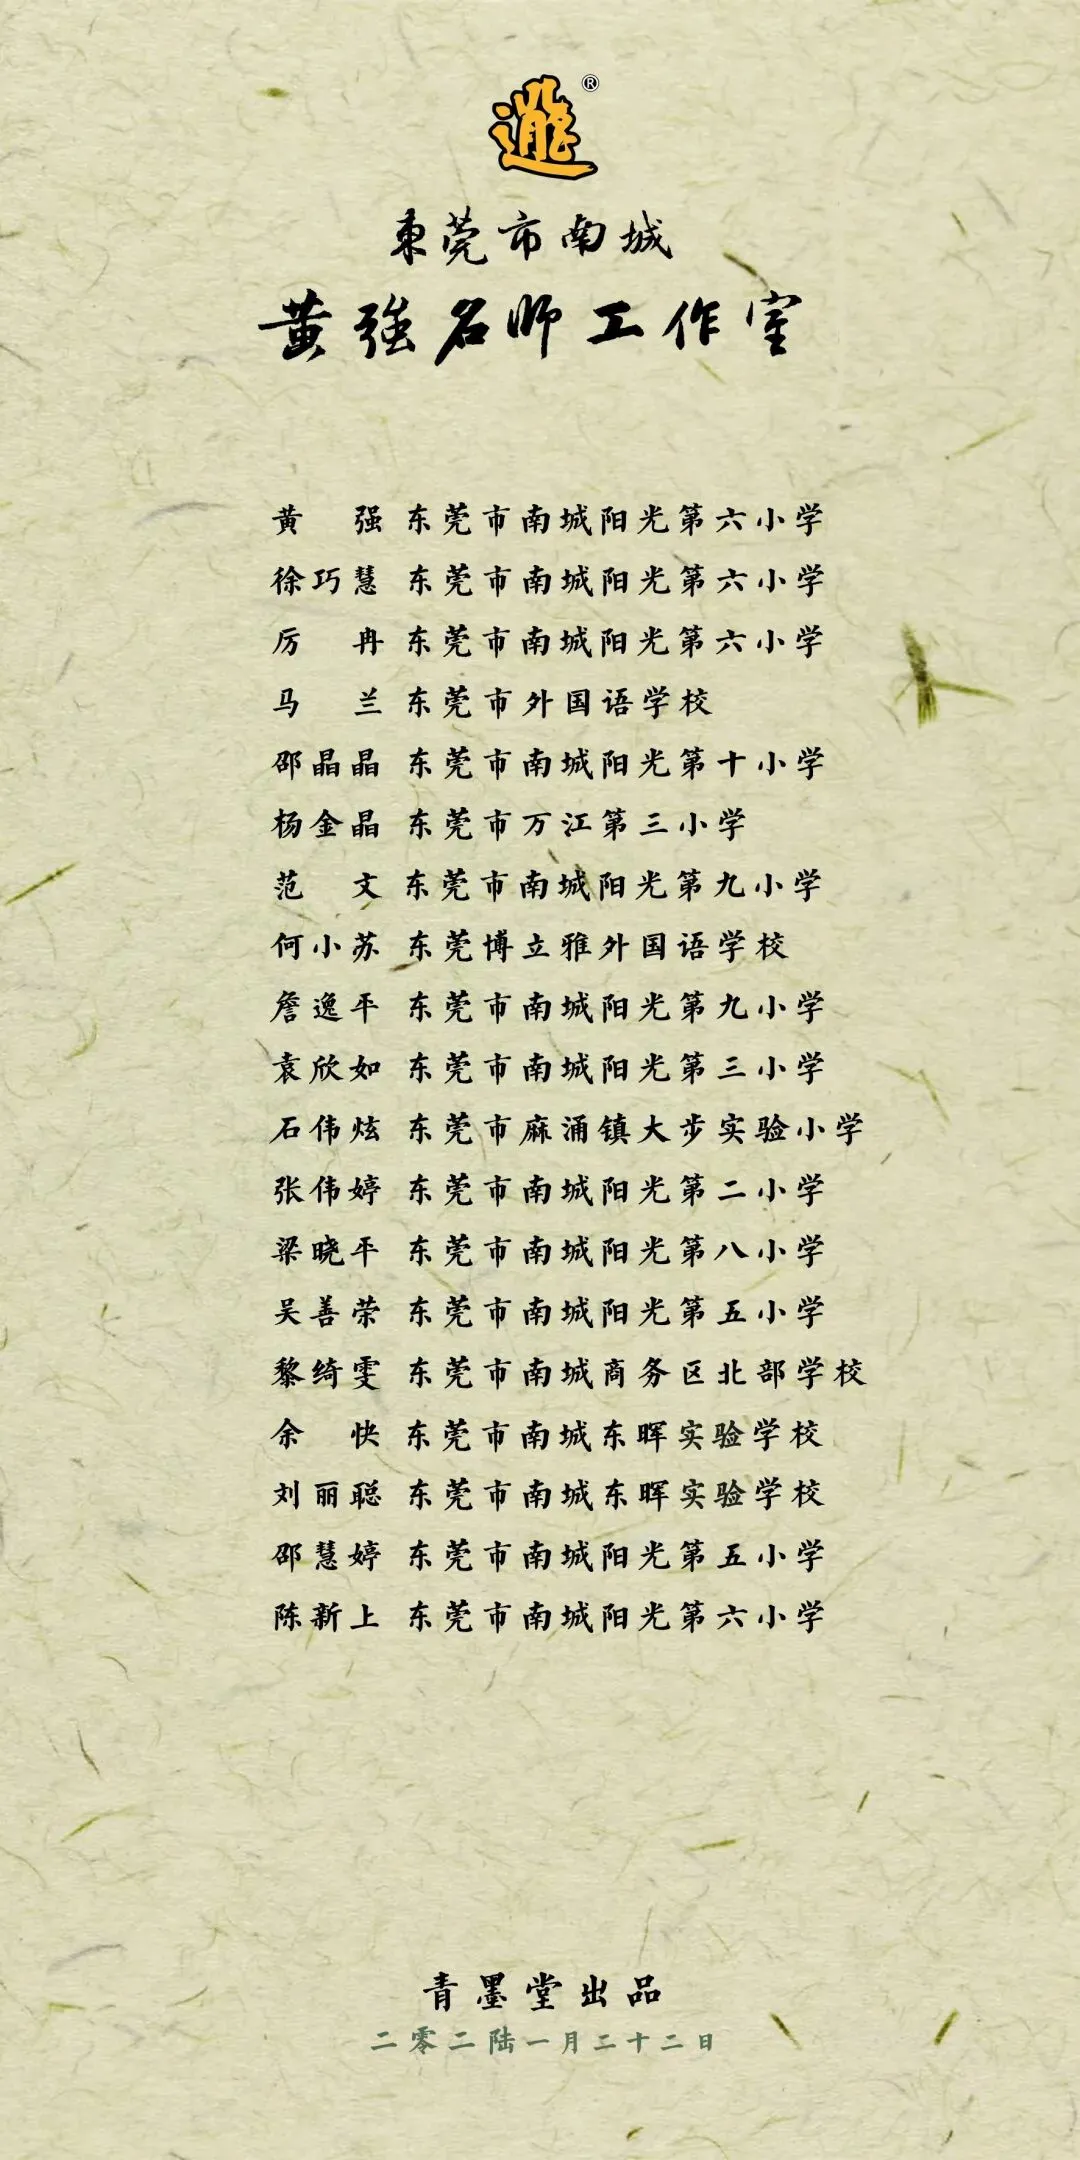 ®
東莞市南城
黄強名师工作室
黄强 东莞市南城阳光第六小学
徐巧慧 东莞市南城阳光第六小学
厉冉 东莞市南城阳光第六小学
马兰 东莞市外国语学校
邵晶晶 东莞市南城阳光第十小学
杨金晶 东莞市万江第三小学
范文 东莞市南城阳光第九小学
何小苏 东莞博立雅外国语学校
詹逸平 东莞市南城阳光第九小学
袁欣如 东莞市南城阳光第三小学
石伟炫 东莞市麻涌镇大步实验小学
张伟婷 东莞市南城阳光第二小学
梁晓平 东莞市南城阳光第八小学
吴善荣 东莞市南城阳光第五小学
黎绮雯 东莞市南城商务区北部学校
余快 东莞市南城东晖实验学校
刘丽聪 东莞市南城东晖实验学校
邵慧婷 东莞市南城阳光第五小学
陈新上 东莞市南城阳光第六小学
青墨堂出品
二零二陆一月二十二日